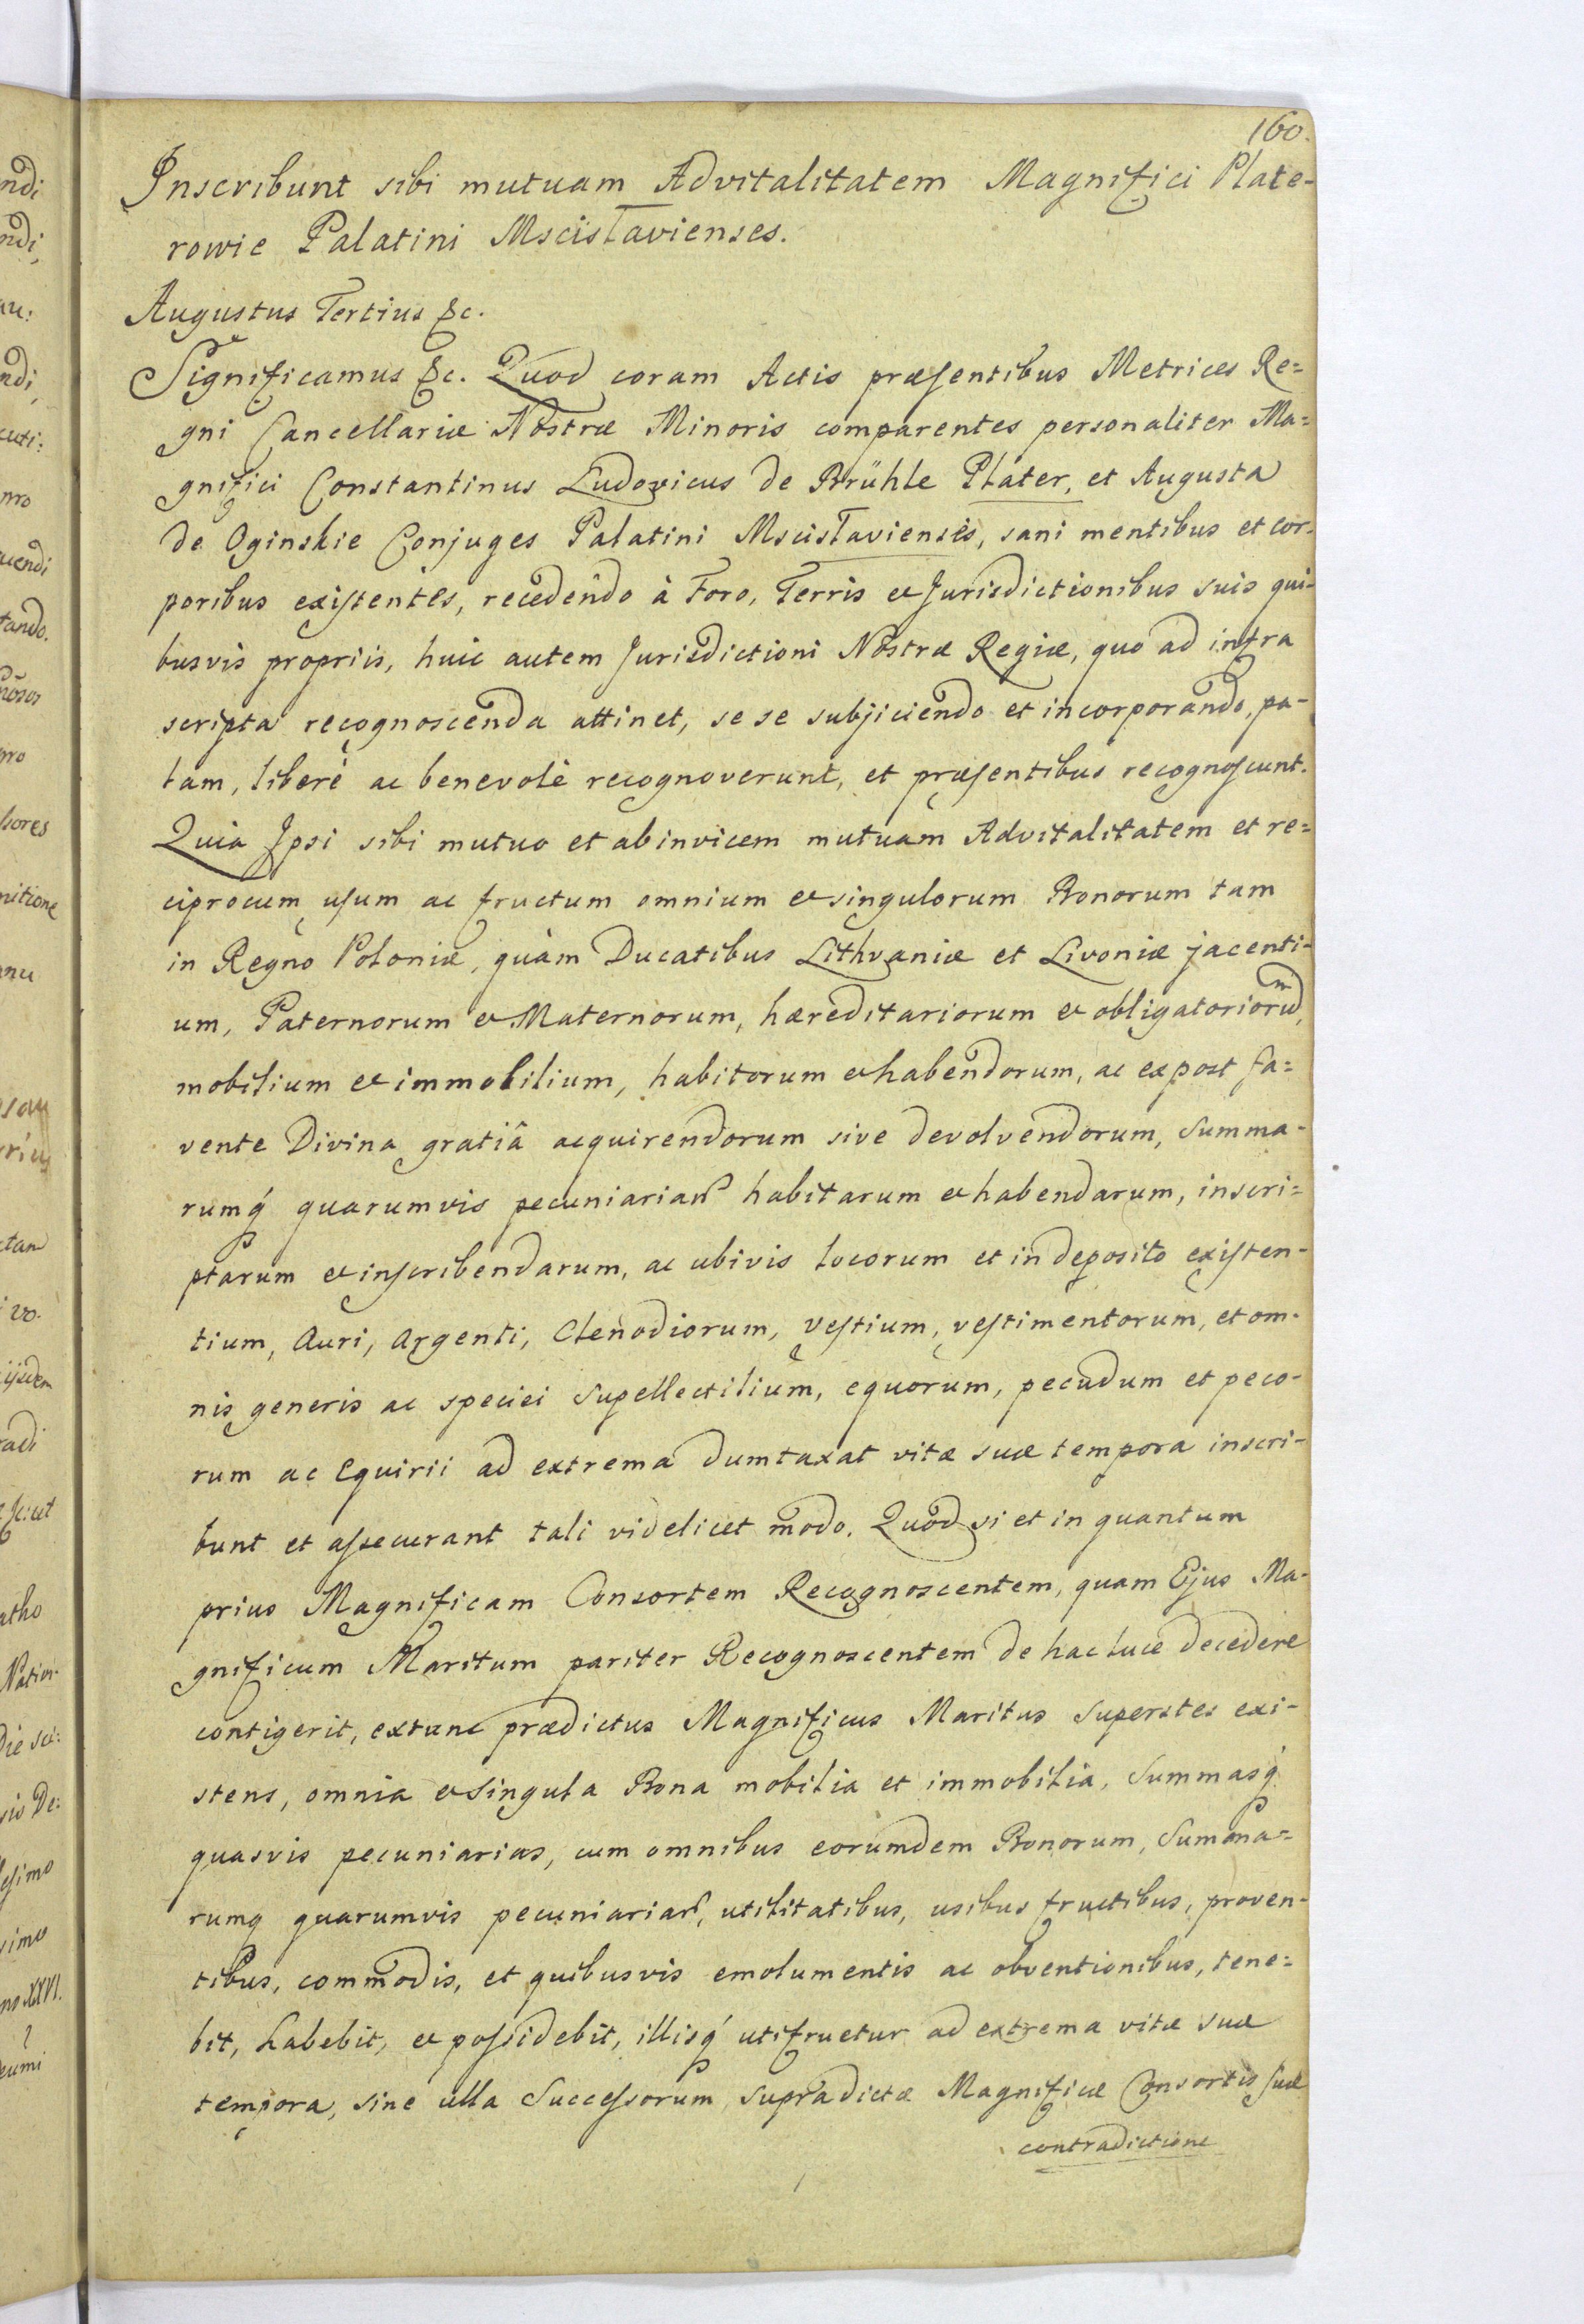 160.
Inscribunt sibi mutuam Advitalitatem Magnifici Plate-
rowie Palatini Mscisłavienses.
Augustus Tertius &c.
Significamus &c. Quod coram Actis præsentibus Metrices Re=
gni Cancellariæ Nostræ Minoris comparentes personaliter Ma=
gnifici Constantinus Ludovicus de Brühle Plater, et Augusta
de Oginskie Conjuges Palatini Mscisłavienses, sani mentibus et cor-
poribus existentes, recedendo à Foro, Terris et Jurisdictionibus suis qui-
busvis propriis, huic autem Jurisdictioni Nostræ Regiæ, quo ad infra
scripta recognoscenda attinet, se se subjiciendo et incorporando, pa-
lam, liberè ac benevolè recognoverunt, et præsentibus recognoscunt.
Quia Ipsi sibi mutuo et abinvicem mutuam Advitalitatem et re=
ciprocum usum ac fructum omnium et singulorum Bonorum tam
in Regno Poloniæ, quàm Ducatibus Lithvaniæ et Livoniæ jacenti-
um, Paternorum et Maternorum, hæreditariorum et obligatoriorum,
mobilium et immobilium, habitorum et habendorum, ac ex post fa=
vente Divina gratiâ acquirendorum sive devolvendorum, Summa-
rumq́ quarumvis pecuniariar̃ habitarum et habendarum, inscri=
ptarum et inscribendarum, ac ubivis locorum et in deposito existen-
tium, Auri, Argenti, Clenodiorum, vestium, vestimentorum, et om-
nis generis ac speciei Supellectilium, equorum, pecudum et peco-
rum ac Equirii ad extrema dumtaxat vitæ suæ tempora inscri-
bunt et assecurant tali videlicet modo. Quod si et in quantum
prius Magnificam Consortem Recognoscentem, quam Ejus Ma-
gnificum Maritum pariter Recognoscentem de hac luce decedere
contigerit, extunc prædictus Magnificus Maritus Superstes exi-
stens, omnia et Singula Bona mobilia et immobilia, Summasq́
quasvis pecuniarias, cum omnibus eorumdem Bonorum, Summa=
rumq quarumvis pecuniariar̃, utilitatibus, usibus fructibus, proven-
tibus, commodis, et quibusvis emolumentis ac obventionibus, tene=
bit, habebit, et possidebit, illisq́ utifruetur ad extrema vitæ suæ
tempora, sine ulla Successorum supradictæ Magnificæ Consortis suæ
contradictione